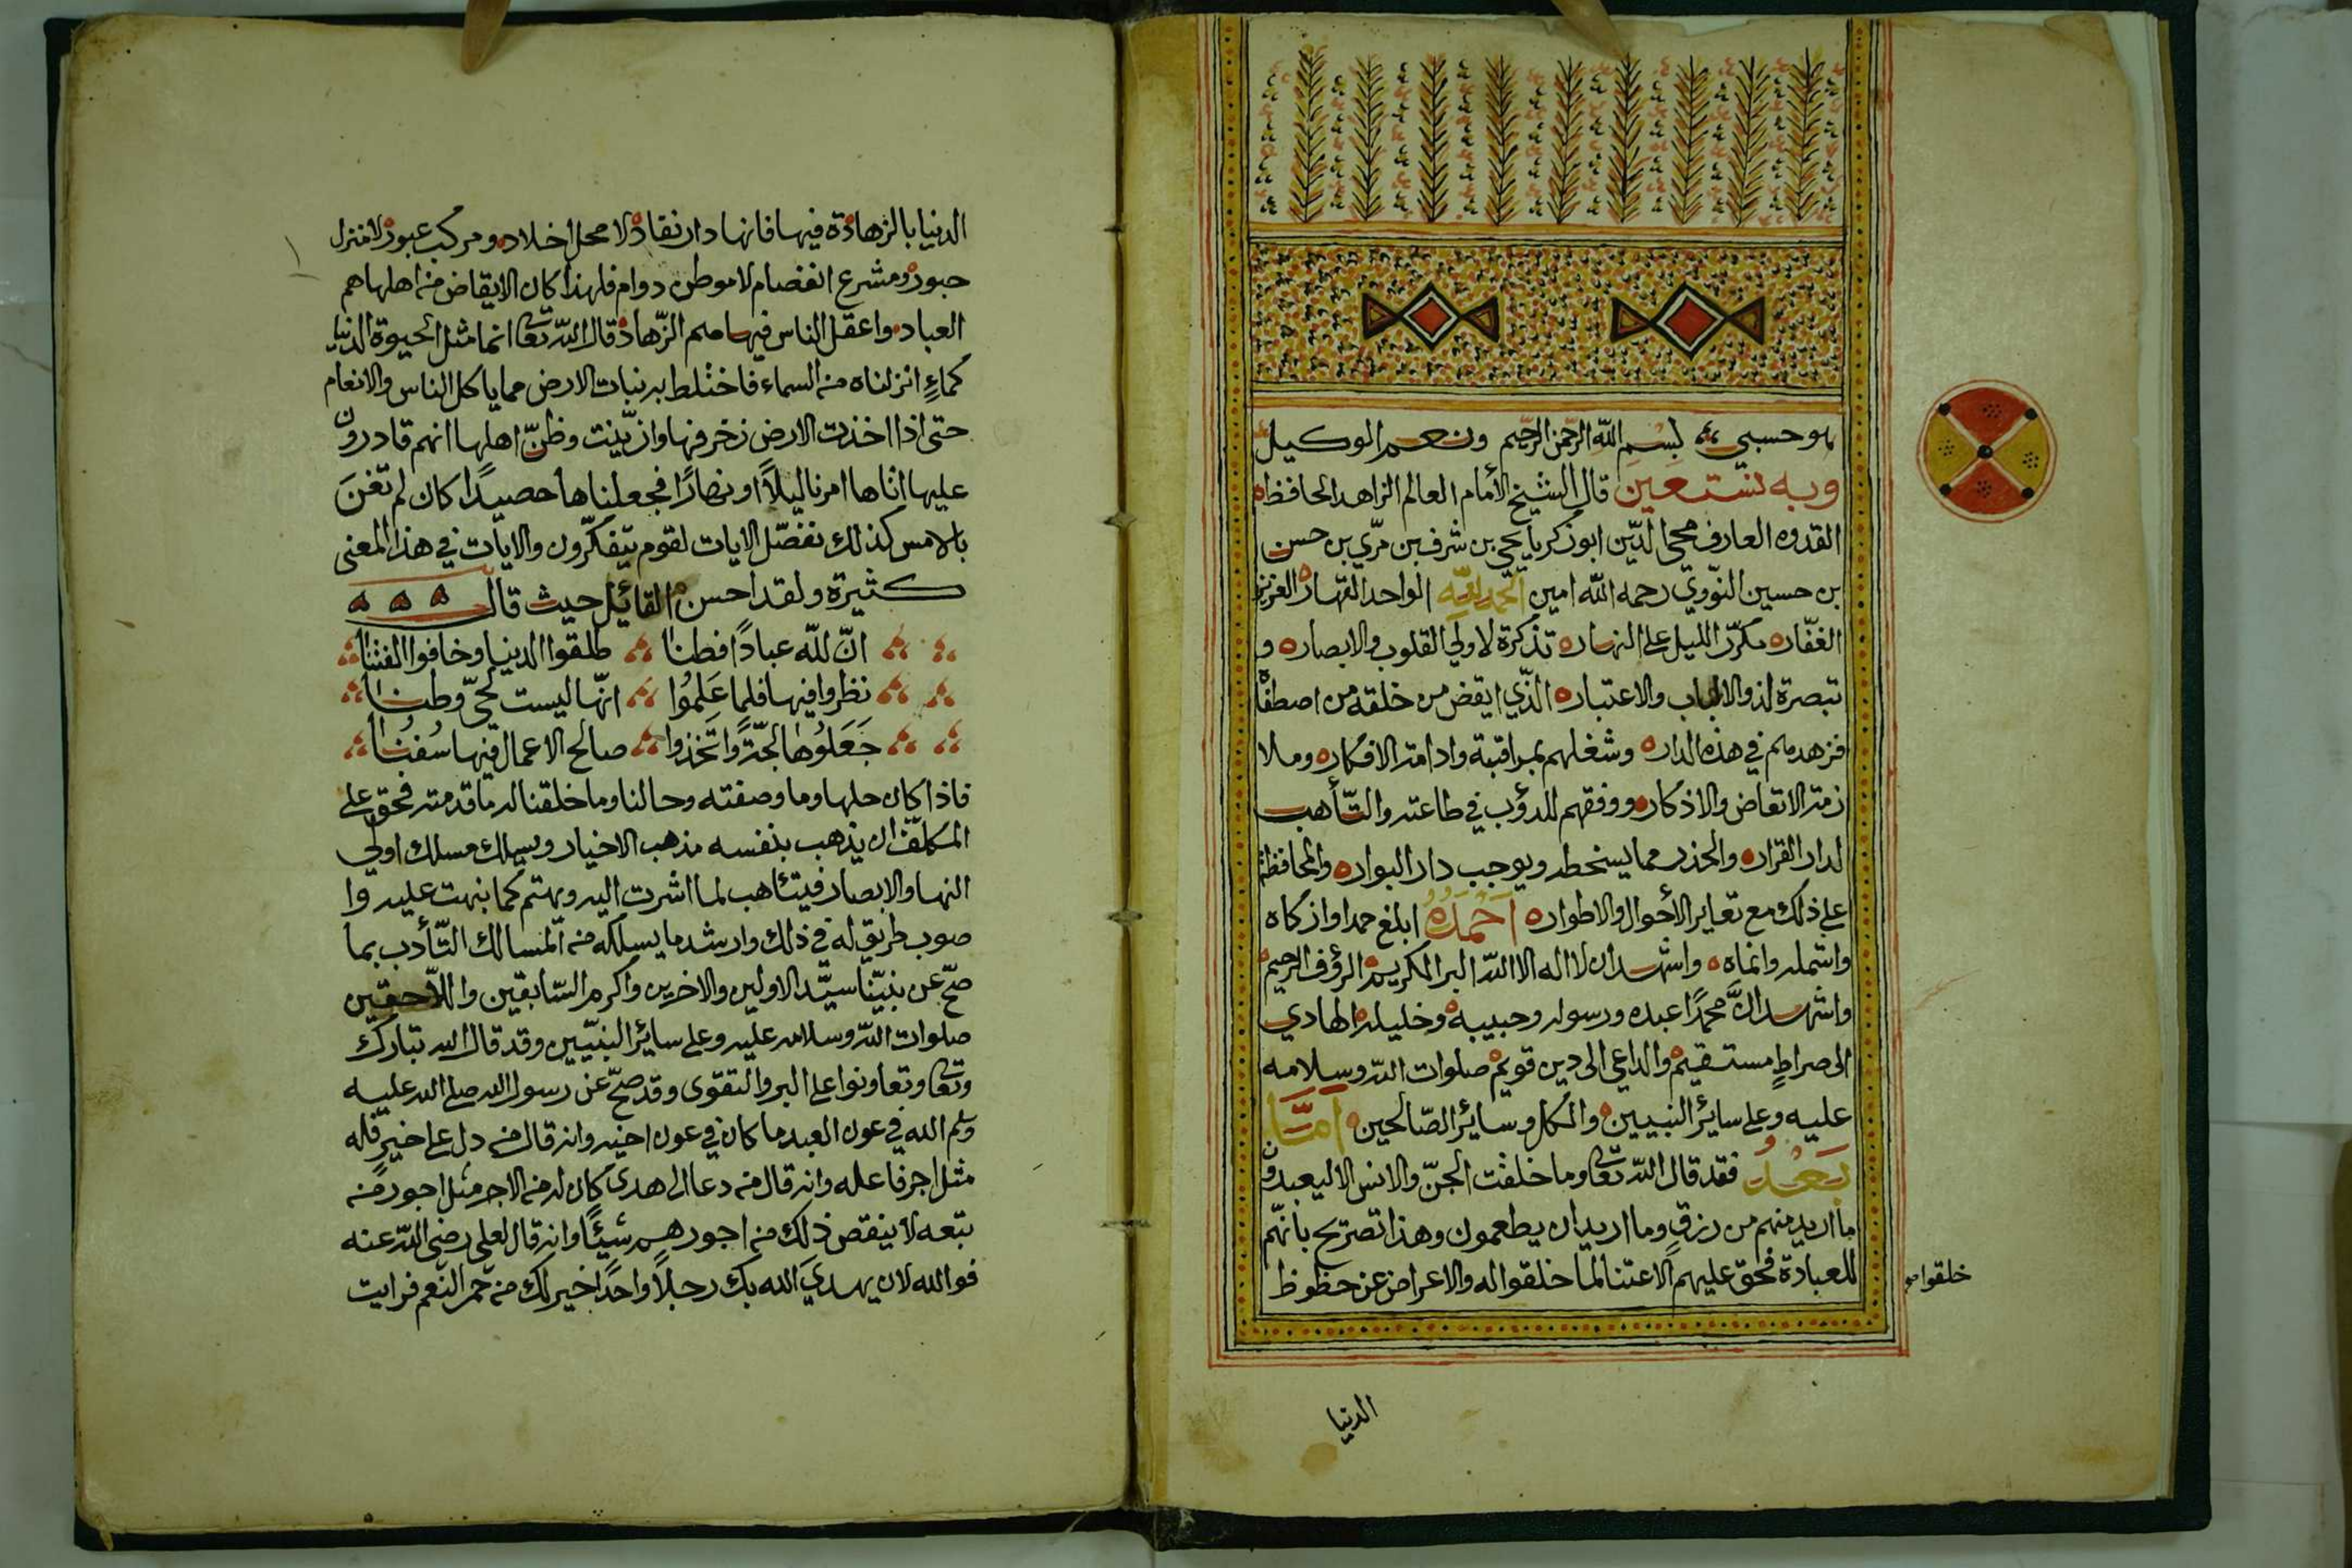 هو حسبي بسم الله الرحمن الرحيم ونعم الوكيل
وبه نستعين قال الشيخ الأمام العالم الزاهد الحافظ
القدوه العارف محي الدّين ابو زكريا يحي بن شرف بن مرّي بن حسن
بن حسين النّووي رحمه الله امين الحمد لله الواحد القهار العزيز
الغفّار مكرّر الليل على النهار تذكرة لاولي القلوب والابصار و
تبصرة لذو الالباب والاعتبار الذّي ايقض من خلقه من اصطفاه
فزهدهم في هذه الدار وشغلهم بمراقبة وادامته الافكار وملا
زمته الاتعاض والاذكار ووفقهم للدؤب في طاعته والتّأهب
لدار القرار والحذر مما يسخطه ويوجب دار البوار والمحافظة
على ذلك مع تغاير الأحوال والاطوار أحمده ابلغ حمد وازكاه
واشمله وانماه واشهد ان لا اله الا الله البر الكريم الرؤف الرحيم
واشهد انَّ محمدًا عبده ورسوله وحبيبه وخليله الهادي
الى صراطٍ مستقيم والداعي الى دين قويم صلوات الله وسلامه
عليه وعلى سائر النبيين والكل وسائر الصّالحين أمّا
بَعْدُ فقد قال الله تعا وما خلقت الجنّ والانس الا ليعبدون
ما اريد منهم من رزقٍ وما اريد ان يطعمون وهذا تصريح بانّهم
للعبادة فحق عليهم الاعتنا لما خلقوا له والاعراض عن حظوظ
خلقوا
الدنيا
الدنيا بالزهادة فيها فانها دار نفاد لا محل اخلاد ومركب عبور لا منزل
حبور ومشرع انفصام لا موطن دوام فلهذا كان الايقاض من اهلها هم
العباد واعقل الناس فيها هم الزّهاد قال الله تعا انما مثل الحيوة الدنيا
كماءٍ انزلناه من السماء فاختلط به نبات الارض مما ياكل الناس والانعام
حتى اذا اخذت الارض زخرفها وازّيّنت وظنّ اهلها انهم قادرون
عليها اتاها امرنا ليلاً او نهارًا فجعلناها حصيدًا كان لم تغنَ
بالامس كذلك نفصّل الايات لقوم يتفكّرون والايات في هذا المعنى
كثيرة ولقد احسن القائيل حيث قال
انّ لله عبادًا فطنا طلقوا الدنيا وخافوا الفتنا
نظروا فيها فلما عَلِمُوا انّها ليست لحيّ وطنا
جَعَلُوها لجّةً واتّخذوا صالح الاعمال فيها سُفُنا
فاذا كان حلها وما وصفته وحالنا وما خلقنا له ما قدمته فحق على
المكلّف ان يذهب بنفسه مذهب الاخيار ويسلك مسلك اولي
النها والابصار فيتئاهب لما اشرت اليه ويهتم كما نبهت عليه وا
صوب طريق له في ذلك وارشد ما يسلكه من المسالك التّأدب بما
صحّ عن نبيّنا سيّد الاولين والاخرين واكرم السّابقين واللّاحقين
صلوات الله وسلامه عليه وعلى سائر النبيّين وقد قال الله تبارك
وتعا وتعاونوا على البر والتقوى وقد صحّ عن رسول الله صلى الله عليه
وسلم الله في عون العبد ما كان في عون اخيه وانه قال من دل على خير فله
مثل اجر فاعله وانه قال من دعا الى هدى كان له من الاجر مثل اجور من
تبعه لا ينقص ذلك من اجورهم شيئًا وانه قال لعلي رضي الله عنه
فوالله لان يهديَ الله بك رجلاً واحدًا خير لك من حمر النّعم فرايت